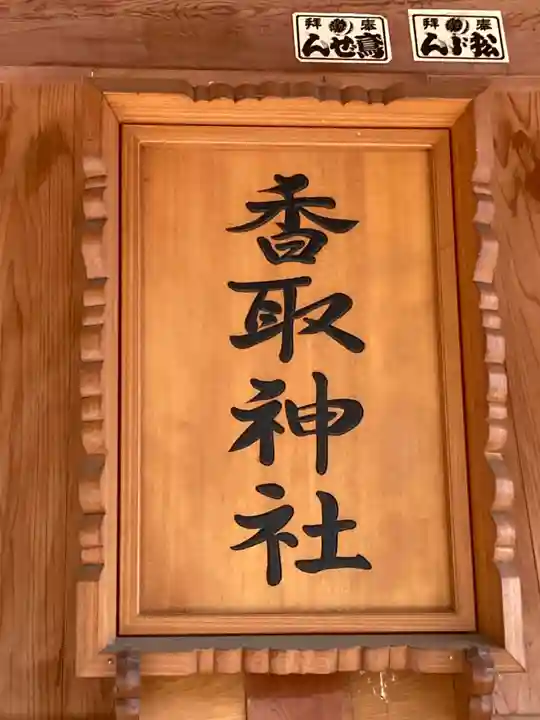 奉拝
松ぶん
奉拝
鳶せん
香取神社